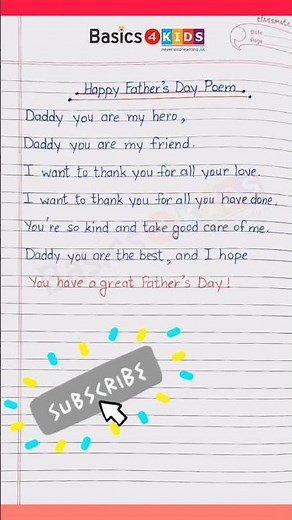 classmate
Date
Page
Basics 4 KIDS
never stop learning
Happy Father's Day Poem
Daddy you are my hero,
Daddy you are my friend.
I want to thank you for all your love.
I want to thank you for all you have done.
You're so kind and take good care of me.
Daddy you are the best, and I hope
You have a great Father's Day!
Basics 4 KIDS
SUBSCRIBE